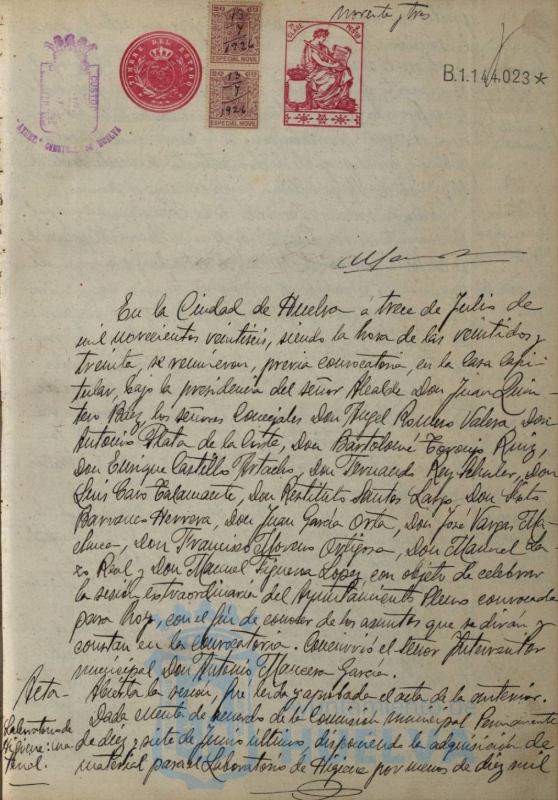 noventa y tres
TIMBRE DEL ESTADO
13
7
1926
ESPECIAL MOVIL
13
7
1926
ESPECIAL MOVIL
CLASE
B.1.144.023*
AYUNT.º CONSTIT.L DE HUELVA
En la Ciudad de Huelva á trece de Julio de
mil novecientos veintiseis, siendo la hora de las veintidos y
treinta, se reunieron, previa convocatoria, en la Casa Capi-
tular, bajo la presidencia del señor Alcalde Don Juan Quin-
tero Báez, los señores Concejales Don Angel Romero Valera, Don
Antonio Plata de la Corte, Don Bartolomé Toronjo Ruiz,
Don Enrique Castillo Portacho, Don Fernando Rey Schuler, Don
Luis Caro Talamante, Don Restituto Santos Labajo, Don Sixto
Barranco Herrera, Don Juan García Orta, Don José Vargas Ma-
chuca, Don Francisco Moreno Ortigosa, Don Manuel La-
zo Real y Don Manuel Figueroa Lopez, con objeto de celebrar
la sesión extraordinaria del Ayuntamiento Pleno convocada
para hoy, con el fin de conocer de los asuntos que se dirán y
constan en la convocatoria. Concurrió el señor Interventor
municipal, Don Antonio Mancera García.
Acta- Abierta la sesión, fue leida y aprobada el acta de la anterior.
Laboratorio de
Higiene: ma-
terial.
Dada cuenta de acuerdo de la Comisión municipal Permanente
de diez y siete de Junio último, disponiendo la adquisición de
material para el Laboratorio de Higiene por menos de diez mil
HUELVA